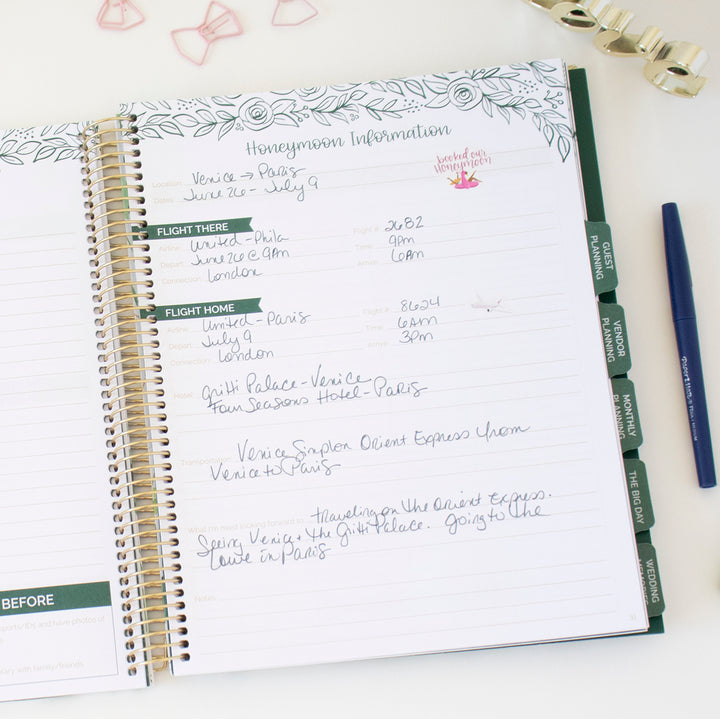 Honeymoon Information
booked our
Honeymoon
Location Venice → Paris
Dates June 26 - July 9
FLIGHT THERE
Airline United - Phila Flight # 2682
Depart June 26 @ 9pm Time 9pm
Connection London Arrive 6am
FLIGHT HOME
Airline United - Paris Flight # 8624
Depart July 9 Time 6am
Connection London Arrive 3pm
Hotel Gritti Palace - Venice
Four Seasons Hotel - Paris
Transportation Venice Simplon Orient Express from
Venice to Paris
What I'm most looking forward to traveling on the Orient Express.
Seeing Venice + the Gritti Palace. Going to the
Louve in Paris
Notes
BEFORE
ports/IDs and have photos of
rary with family/friends
GUEST
PLANNING
VENDOR
PLANNING
MONTHLY
PLANNING
THE BIG DAY
WEDDING
MEMORIES